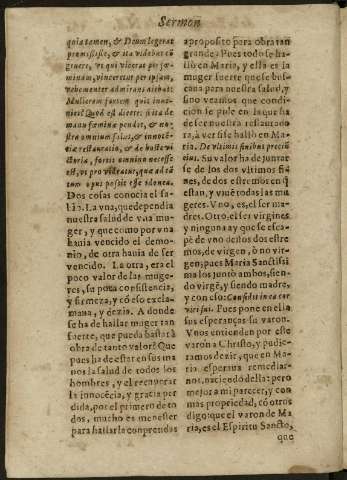 Sermon
quia tamen, & Deum legerat
promisisse, & ita videbat cō
gruere, vt qui vicerat per fœ
minam, vinceretur per ipsam,
vehementer admirans aiebat:
Mulierem fortem quis inue-
niet? Quod est dicere: si ita de
manu fœminæ pendet, & no-
stra omnium salus, & innocē-
tiæ restauratio, & de hoste vi-
ctoria, fortis omnino necesse
est, vt pro videatur, quæ ad tā
tum opus possit esse idonea.
Dos cosas conocia el sa-
bio. La vna, que dependia
nuestra salud de vna mu-
ger, y que como por vna
hauia vencido el demo-
nio, de otra hauia de ser
vencido. La otra, era el
poco valor de las muge-
res, su poca consistencia,
y firmeza, y cō eso excla-
maua, y dezia. A donde
se ha de hallar muger tan
fuerte, que pueda bastar à
obra de tanto valor? Que
pues ha de estar en sus ma
nos la salud de todos los
hombres, y el recuperar
la innocēcia, y gracia per
dida, por el primero de to
dos, mucho es menester
para hallarla comprendas
a proposito para obra tan
grande. Pues todo se ha-
llò en Maria, y ella es la
muger fuerte que se bus-
caua para nuestra salud, y
sino veamos que condi-
ciòn le pide en la que ha
de ser nuestra restaurado-
ra, à ver si se hallò en Ma-
ria. De vltimis finibus precium
eius. Su valor ha de juntar
se de los dos vltimos fi-
nes, de dos estremos en q̄
estan, y viuē todas las mu
geres. Vno, es, el ser ma-
dres. Otro, el ser virgines
y ninguna ay que se esca-
pè de vno de los dos estre
mos, de virgen, ò no vir-
gen, pues Maria Sanctissi
ma los juntò ambos, sien-
do virgē, y siendo madre,
y con eso: Confidit in ea cor
viri sui. Pues pone en ella
sus esperanças su varon.
Vnos entienden por ese
varon a Christo, y pudie-
ramos dezir, que en Ma-
ria esperaua remediar-
nos, naciendo della: pero
mejor a mi parecer, y con
mas propriedad, cō otros
digo: que el varon de Ma
ria, es el Espiritu Sancto,
que